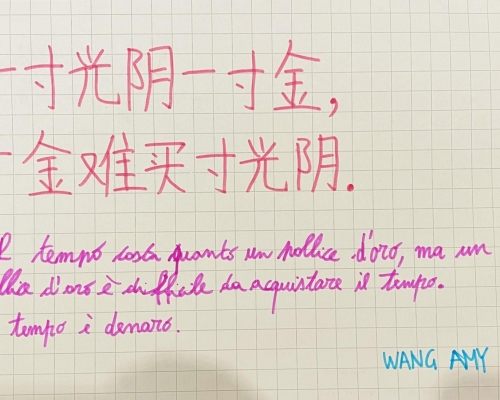 一寸光阴一寸金,
金难买寸光阴.
l tempo costa quanto un pollice d'oro, ma un
llice d'oro è difficile da acquistare il tempo.
tempo è denaro.
WANG AMY